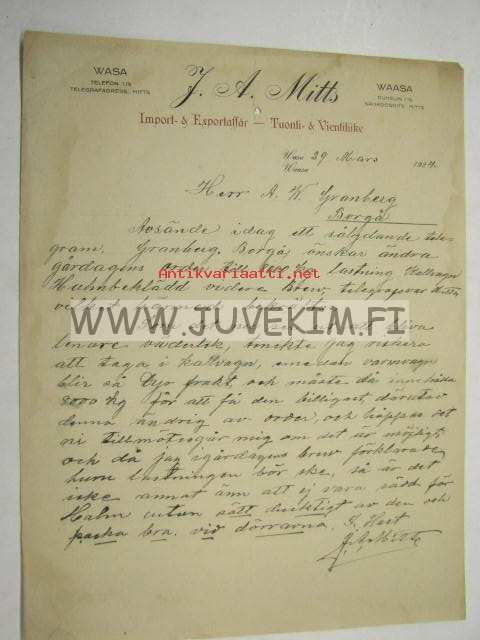 WASA
TELEFON 1/9
TELEGRAFADRESS: MITTS
J. A. Mitts
WAASA
PUHELIN 1/9
SÄHKÖOSOITE: MITTS
Import- & Exportaffär — Tuonti- & Vientiliike
Wasa
Waasa 29 Mars 192
Herr A. W. Granberg
Borgå
Avsände idag ett sålydande tele-
gram. Granberg, Borgå, önskar ändra
gårdagens lastning Kallvagn
Halmbeklädd vidare Brev, telegrafsvar Mitts
Antikvariaatti.net
WWW.JUVEKIM.FI
bliva
lenare väderlek, jag riskera
att taga i Kallvagn, emedan varmvagn
blir så dyr frakt, och måste då innehålla
8000 kg för att få den billigast, därutav
denna ändring av order, och hoppas det
ni tillmötesgår mig om det är möjligt,
och då jag i gårdagens brev förklarade
huru lastningen bör ske, så är det
icke annat änn att ej vara rädd för
Halm utan sätt duktigt av den och
packa bra vid dörrarna.
J. A. Mitts